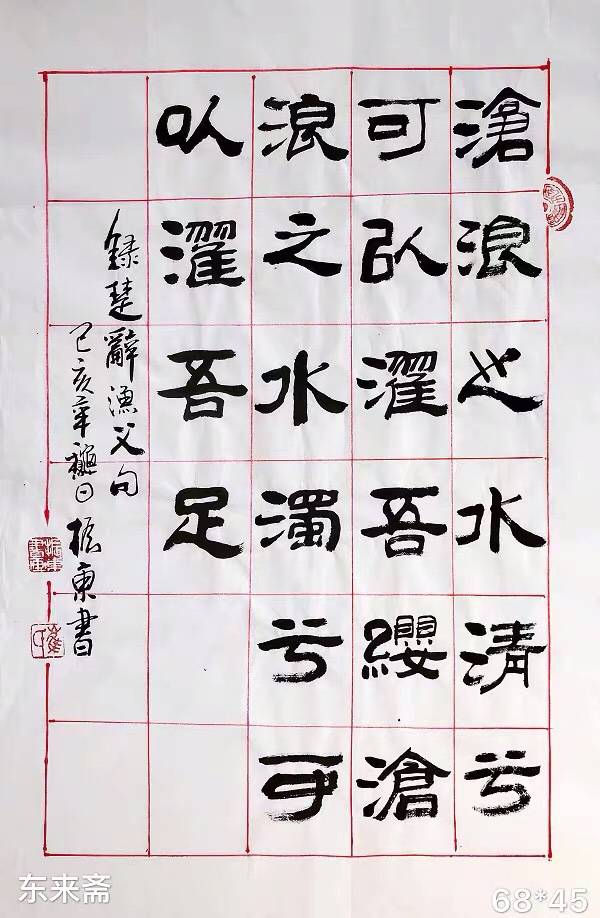 滄浪之水清兮
可以濯吾纓滄
浪之水濁兮可
以濯吾足
錄楚辭漁父句
己亥年 日振東書
东来斋
68*45